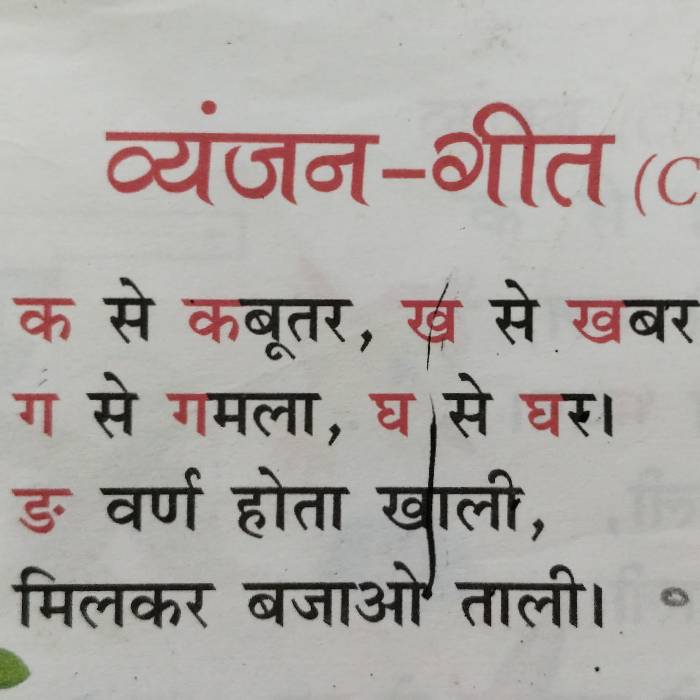 व्यंजन-गीत (C
क से कबूतर, ख से खबर
ग से गमला, घ से घर।
ङ वर्ण होता खाली,
मिलकर बजाओ ताली।